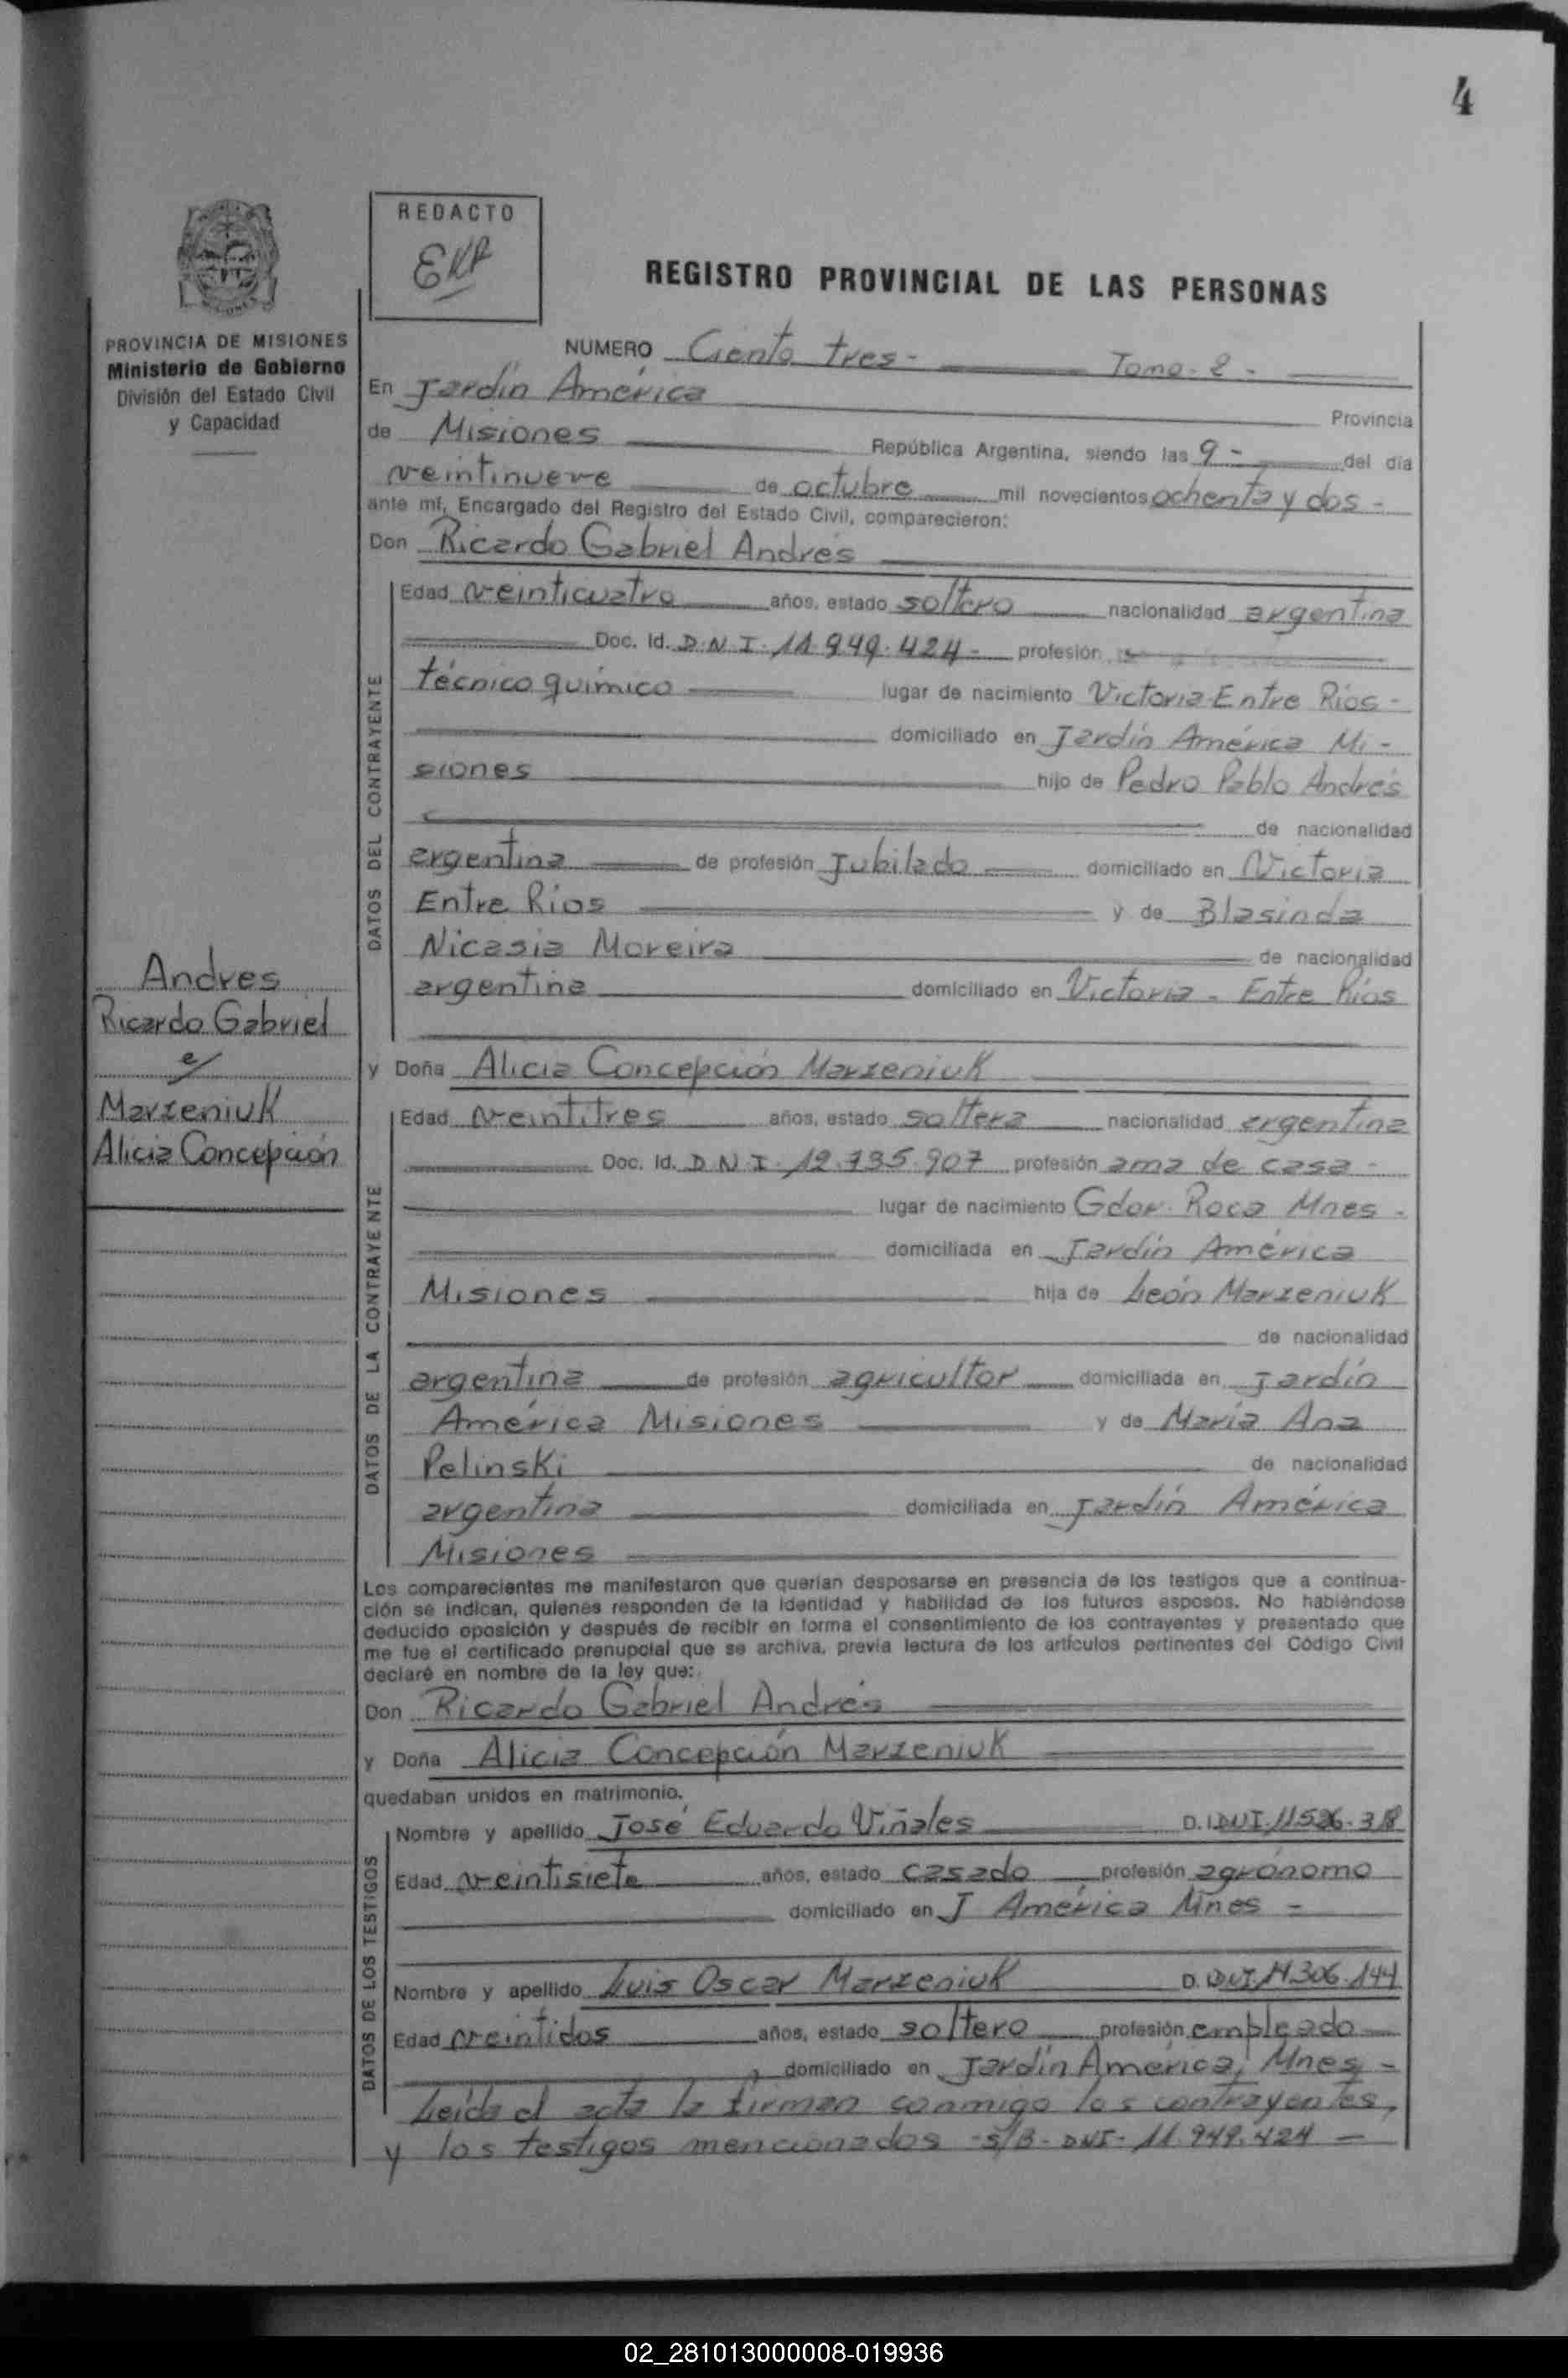 4
REDACTO
REGISTRO PROVINCIAL DE LAS PERSONAS
PROVINCIA DE MISIONES
Ministerio de Gobierno
División del Estado Civil
y Capacidad
NUMERO Ciento tres - Tomo - 2 -
En Jardín América Provincia
de Misiones República Argentina, siendo las 9 - del día
veintinueve de octubre mil novecientos ochenta y dos -
ante mí, Encargado del Registro del Estado Civil, comparecieron:
Don Ricardo Gabriel Andrés
DATOS DEL CONTRAYENTE
Edad veinticuatro años, estado soltero nacionalidad argentina
Doc. Id. D.N.I. 11.949.424 - profesión
técnico químico lugar de nacimiento Victoria-Entre Ríos -
domiciliado en Jardín América Mi -
siones hijo de Pedro Pablo Andrés
de nacionalidad
argentina de profesión Jubilado domiciliado en Victoria
Entre Ríos y de Blasinda
Nicasia Moreira de nacionalidad
argentina domiciliado en Victoria - Entre Ríos
Andres
Ricardo Gabriel
c/
Marzeniuk
Alicia Concepción
y Doña Alicia Concepción Marzeniuk
DATOS DE LA CONTRAYENTE
Edad veintitres años, estado soltera nacionalidad argentina
Doc. Id. D.N.I. 12.735.907 profesión ama de casa -
lugar de nacimiento Gdor. Roca Mnes -
domiciliada en Jardín América
Misiones hija de León Marzeniuk
de nacionalidad
argentina de profesión agricultor domiciliada en Jardín
América Misiones y de María Ana
Pelinski de nacionalidad
argentina domiciliada en Jardín América
Misiones
Los comparecientes me manifestaron que querían desposarse en presencia de los testigos que a continua-
ción se indican, quienes responden de la identidad y habilidad de los futuros esposos. No habiéndose
deducido oposición y después de recibir en forma el consentimiento de los contrayentes y presentado que
me fue el certificado prenupcial que se archiva, previa lectura de los artículos pertinentes del Código Civil
declaré en nombre de la ley que:
Don Ricardo Gabriel Andrés
y Doña Alicia Concepción Marzeniuk
quedaban unidos en matrimonio.
DATOS DE LOS TESTIGOS
Nombre y apellido José Eduardo Viñales D.I. DNI.
Edad veintisiete años, estado casado profesión agrónomo
domiciliado en J América Mnes -
Nombre y apellido Luis Oscar Marzeniuk D.I. DNI 14.306.144
Edad veintidos años, estado soltero profesión empleado
domiciliado en Jardín América, Mnes -
Leída el acta la firman conmigo los contrayentes,
y los testigos mencionados - s/B - DNI - 11.949.424 -
02_281013000008-019936